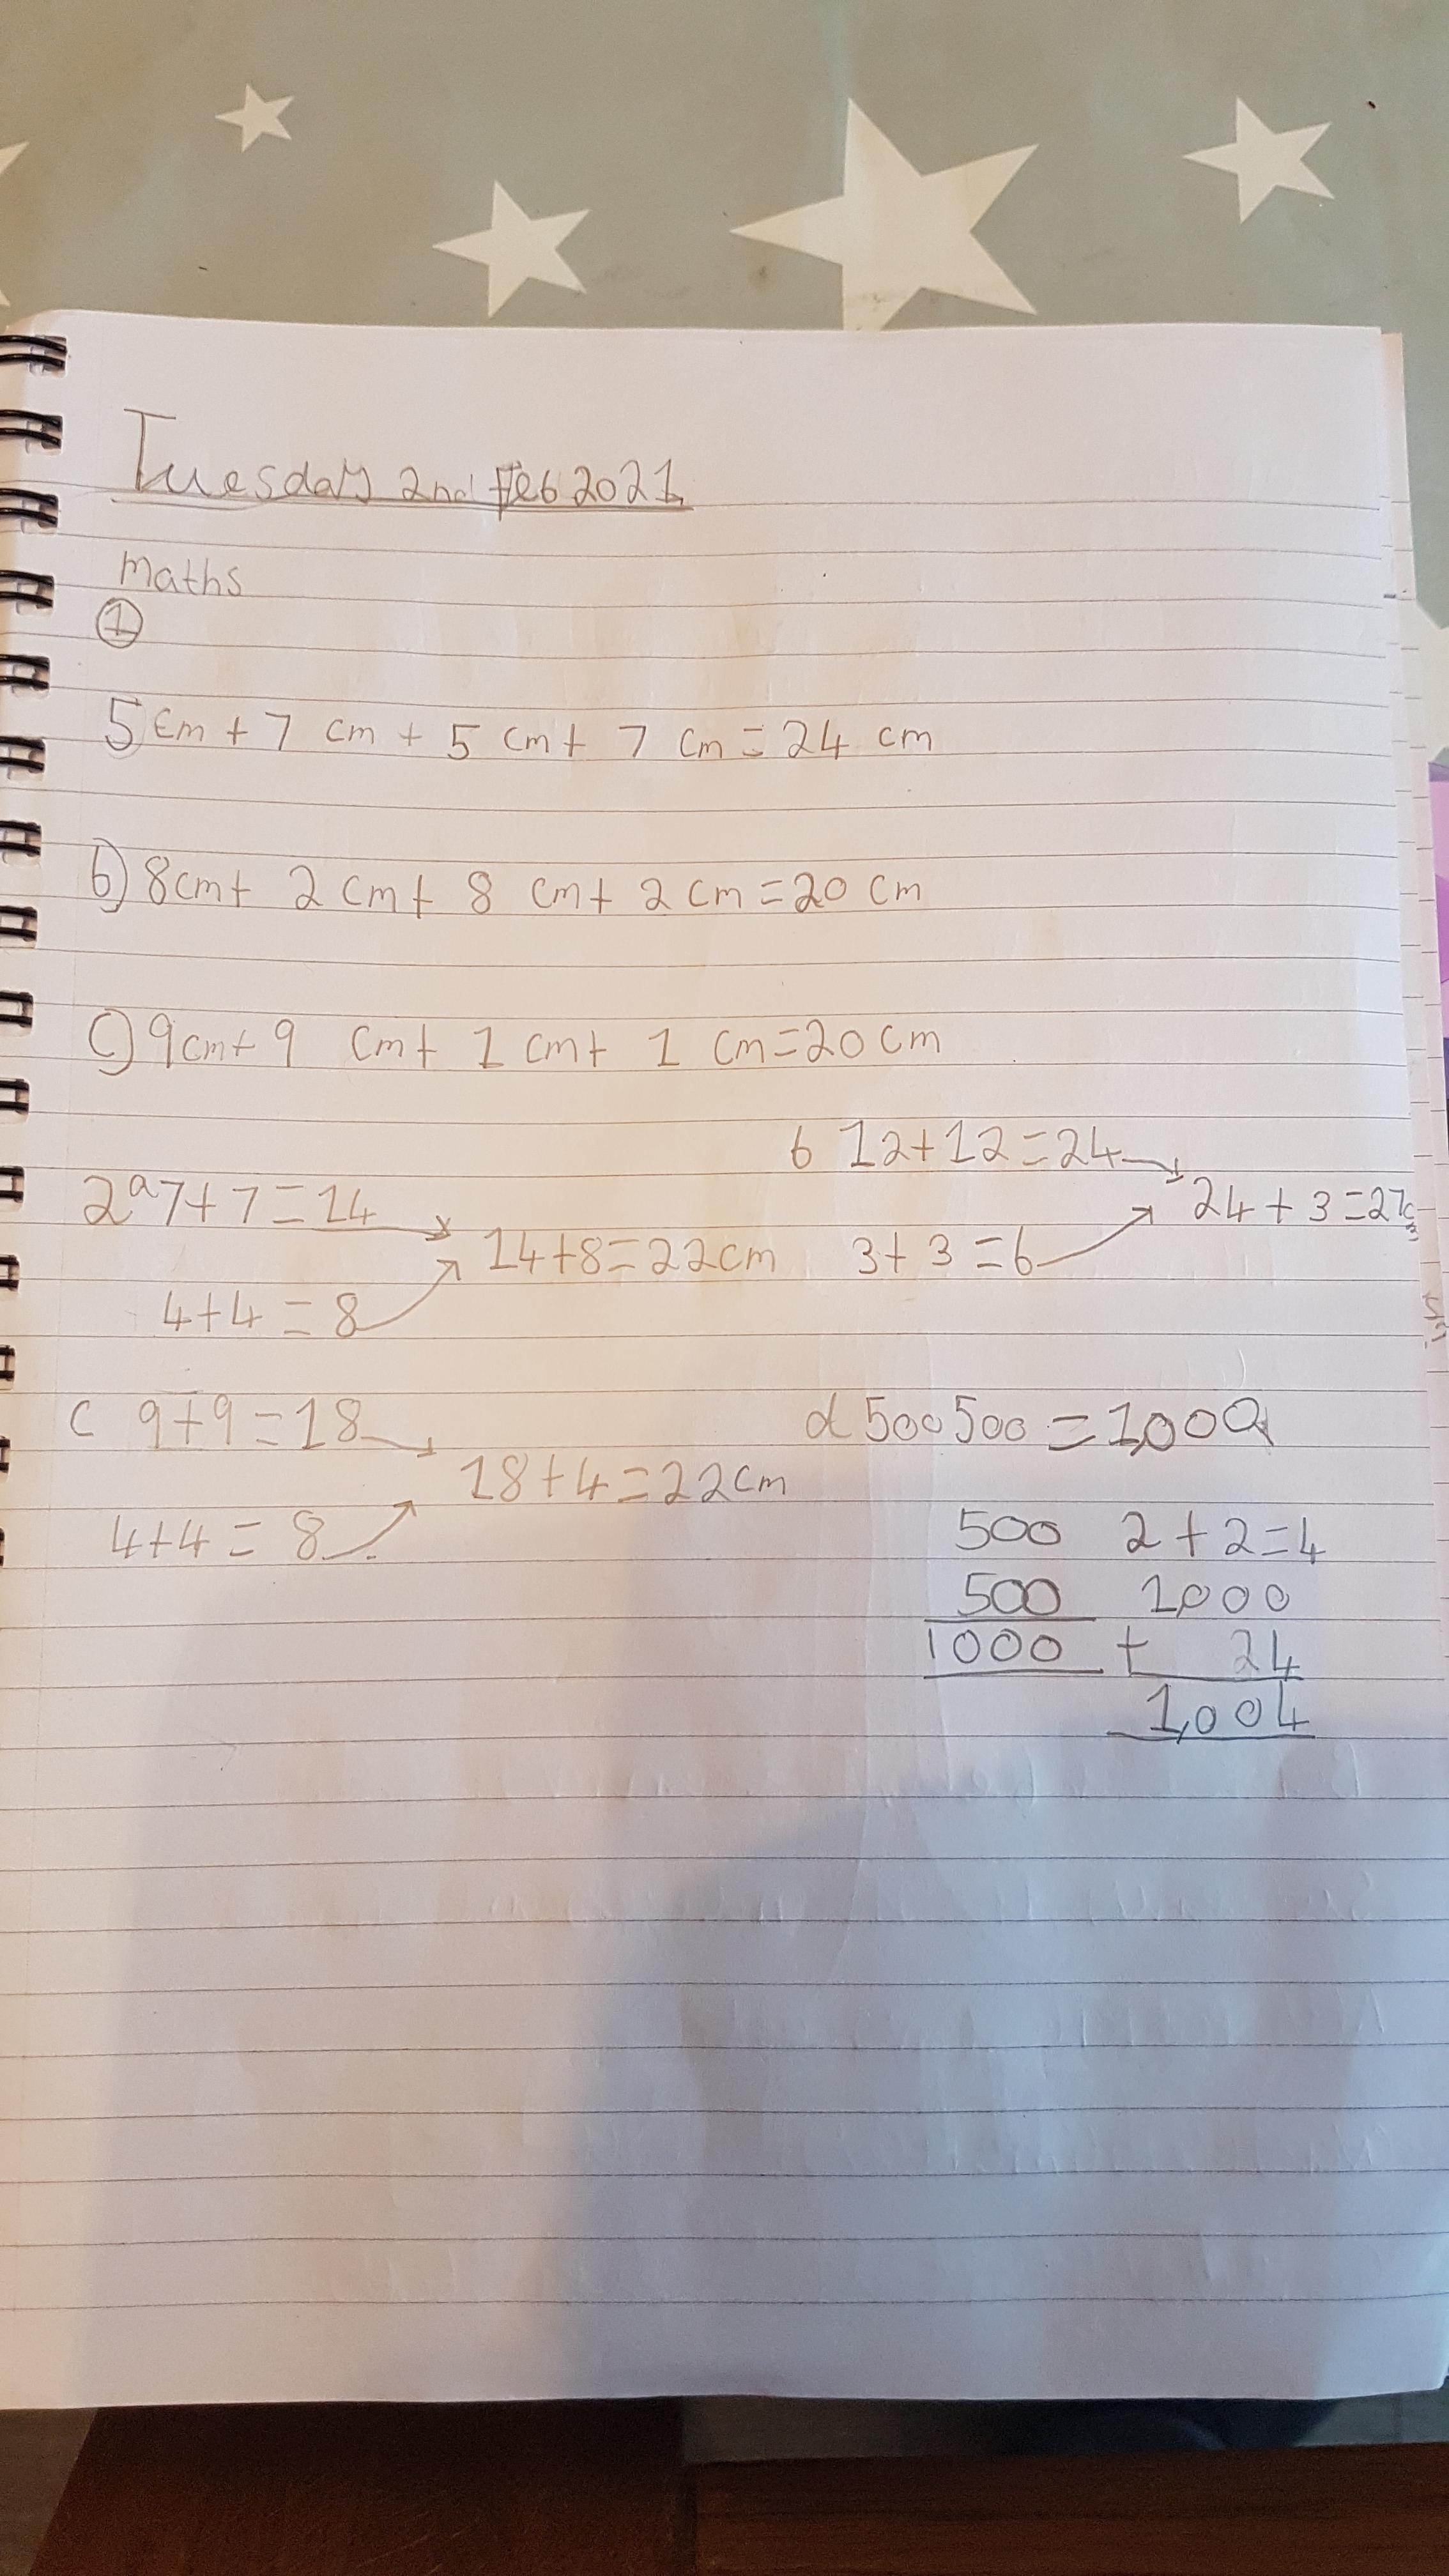 Tuesday 2nd Feb 2021
Maths
1
5cm + 7 cm + 5 cm + 7 cm = 24 cm
b) 8cm + 2 cm + 8 cm + 2 cm = 20 cm
c) 9cm + 9 cm + 1 cm + 1 cm = 20 cm
2 a 7+7=14
14+8=22cm
4+4=8
b 12+12=24
24+3=27c
3+3=6
c 9+9=18
18+4=22cm
4+4=8
d 500 500 = 1,000
500
500
1000
2+2=4
1,000
+ 24
1,004